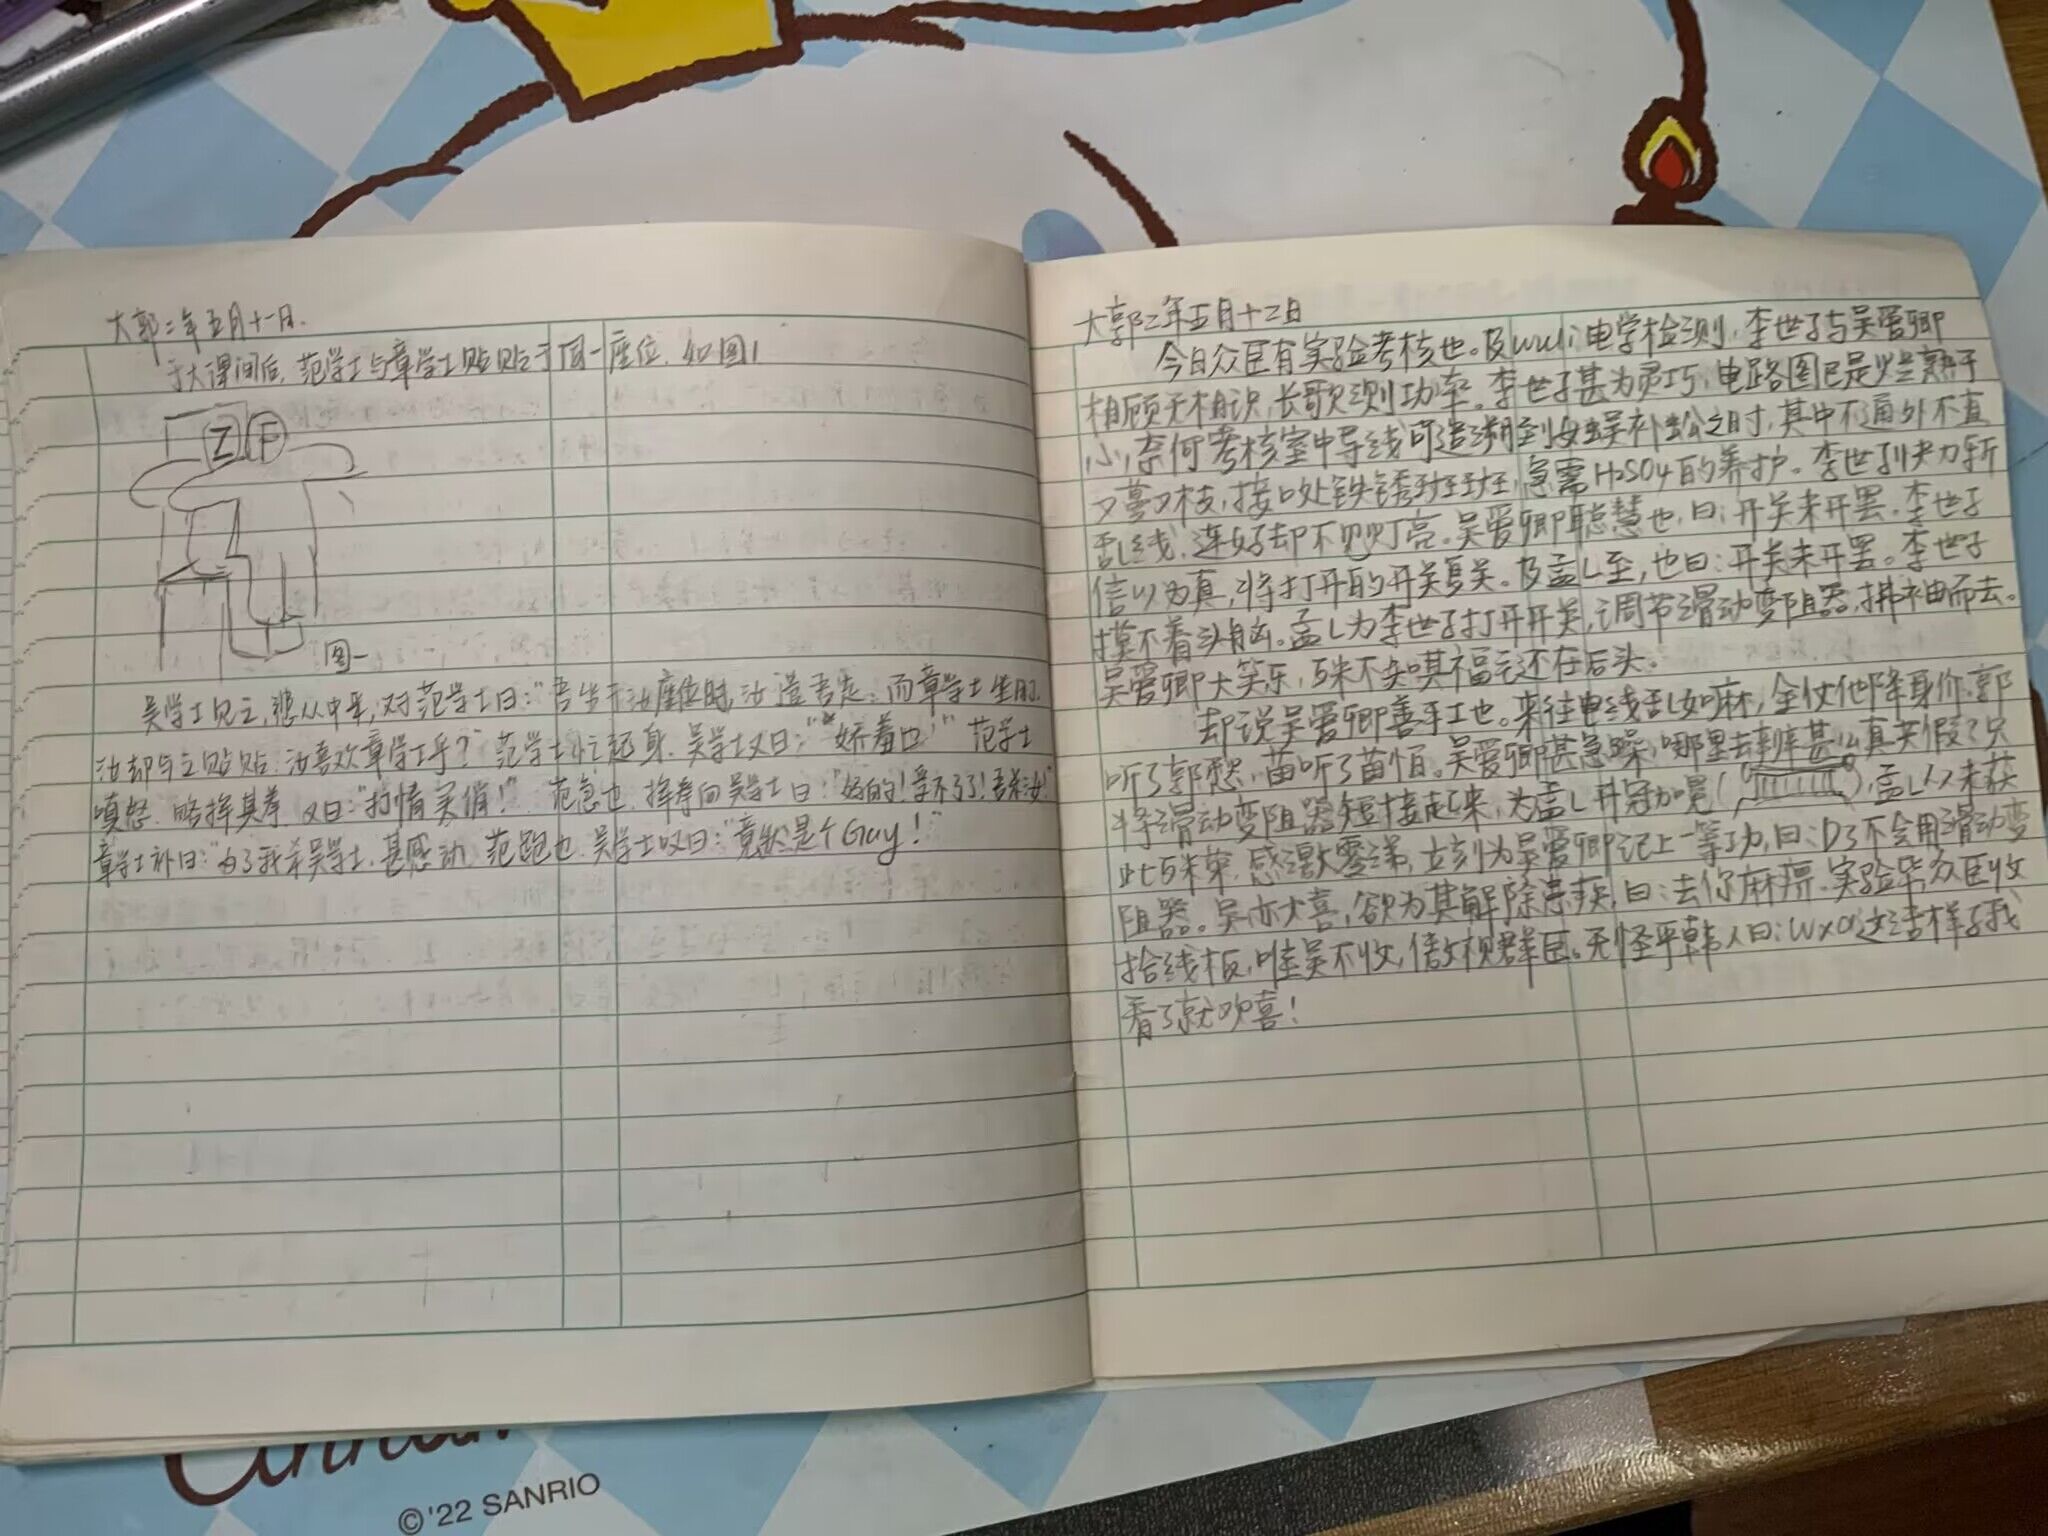 大郭二年五月十一日.
于大课间后,范学士与章学士贴贴于同一座位.如图1
Z F
图一
吴学士见之,悲从中来,对范学士曰:"吾坐于汝座位时,汝遣吾走;而章学士坐时,
汝却与之贴贴.汝喜欢章学士乎?"范学士忙起身.吴学士又曰:"娇羞也!"范学士
嗔怒.略挥其拳.又曰:"打情骂俏!"范急也,挥拳向吴学士曰:"好的!受不了!吾杀汝!"
章学士补曰:"为了我杀吴学士.甚感动.范跑也.吴学士叹曰:"竟然是个Gay!"
大郭二年五月十二日
今日众臣有实验考核也。及wuli电学检测,李世子与吴爱卿
相顾无相识,长歌测功率。李世子甚为灵巧,电路图已是烂熟于
心,奈何考核室中导线可追溯到女娲补天之时,其中不通外不直
又蔓又枝,接口处铁锈斑斑,急需H₂SO4的养护。李世子快刀斩
乱线,连好却不见灯亮。吴爱卿聪慧也,曰:开关未开罢.李世子
信以为真,将打开的开关复关。及孟L至,也曰:开关未开罢。李世子
摸不着头脑。孟L为李世子打开开关,调节滑动变阻器,拂袖而去。
吴爱卿大笑乐,与米不失嘆福气还在后头.
却说吴爱卿善手工也。来往电线乱如麻,全仗他降身价.郭
听了郭愁,苗听了苗怕。吴爱卿甚急躁,哪里去辨甚么真共假?只
将滑动变阻器短接起来,为孟L升冠加冕( ),孟L从未获
此与米荣,感激零涕,立刻为吴爱卿记上一等功,曰:D了不会用滑动变
阻器。吴亦大喜,欲为其解除荡秽,曰:去你麻痹.实验毕众臣收
拾线板,唯吴不收,傲视群臣。无怪乎韩人曰:wxd这洁样子我
看了就欢喜!
©'22 SANRIO